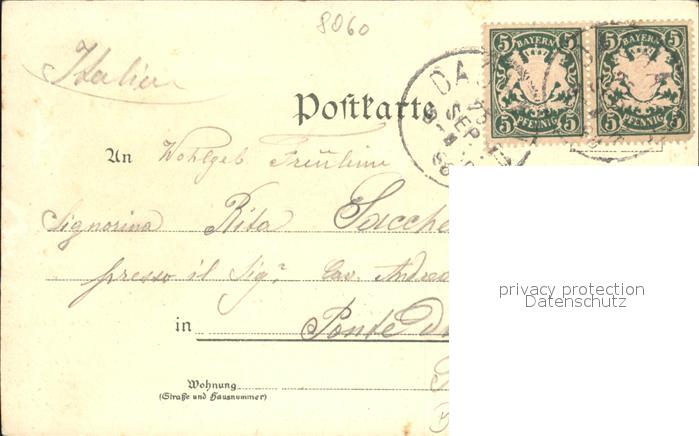 8060
5 BAYERN 5
5 PFENNIG 5
5 BAYERN 5
5 PFENNIG 5
Italien
DA
SEP
Postkarte
An Wohlgeb Fräulein
Signorina Rita Sacche
presso il Sigr Cav. Andrea
in Ponte
Wohnung
(Straße und Hausnummer)
privacy protection
Datenschutz